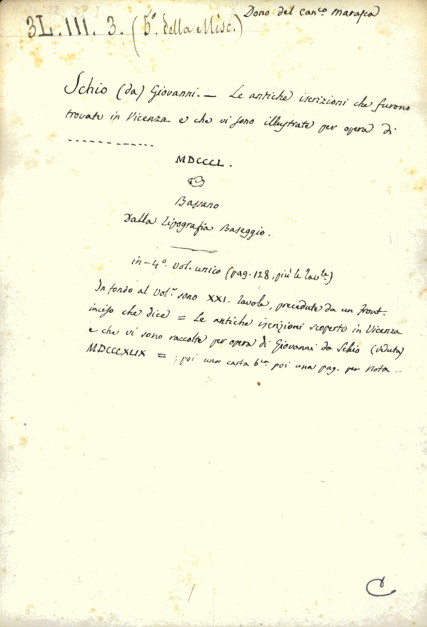 Dono del can.co Marasca
3L. III. 3. (5º della Misc.)
Schio (da) Giovanni. — Le antiche iscrizioni che furono
trovate in Vicenza e che vi sono illustrate per opera di
-------------
MDCCCL.
Bassano
Dalla Tipografia Baseggio.
in-4º. Vol. unico (pag. 128, più le tavle.)
In fondo al Vol.e sono XXI. tavole, precedute da un front.
inciso che dice = Le antiche iscrizioni scoperte in Vicenza
e che vi sono raccolte per opera di Giovanni da Schio (veduta)
MDCCCXLIX = ; poi una carta b.ca poi una pag. per nota